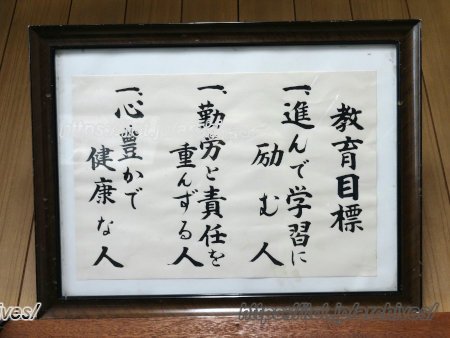 教育目標
一、進んで学習に
励む人
一、勤労と責任を
重んずる人
一、心豊かで
健康な人